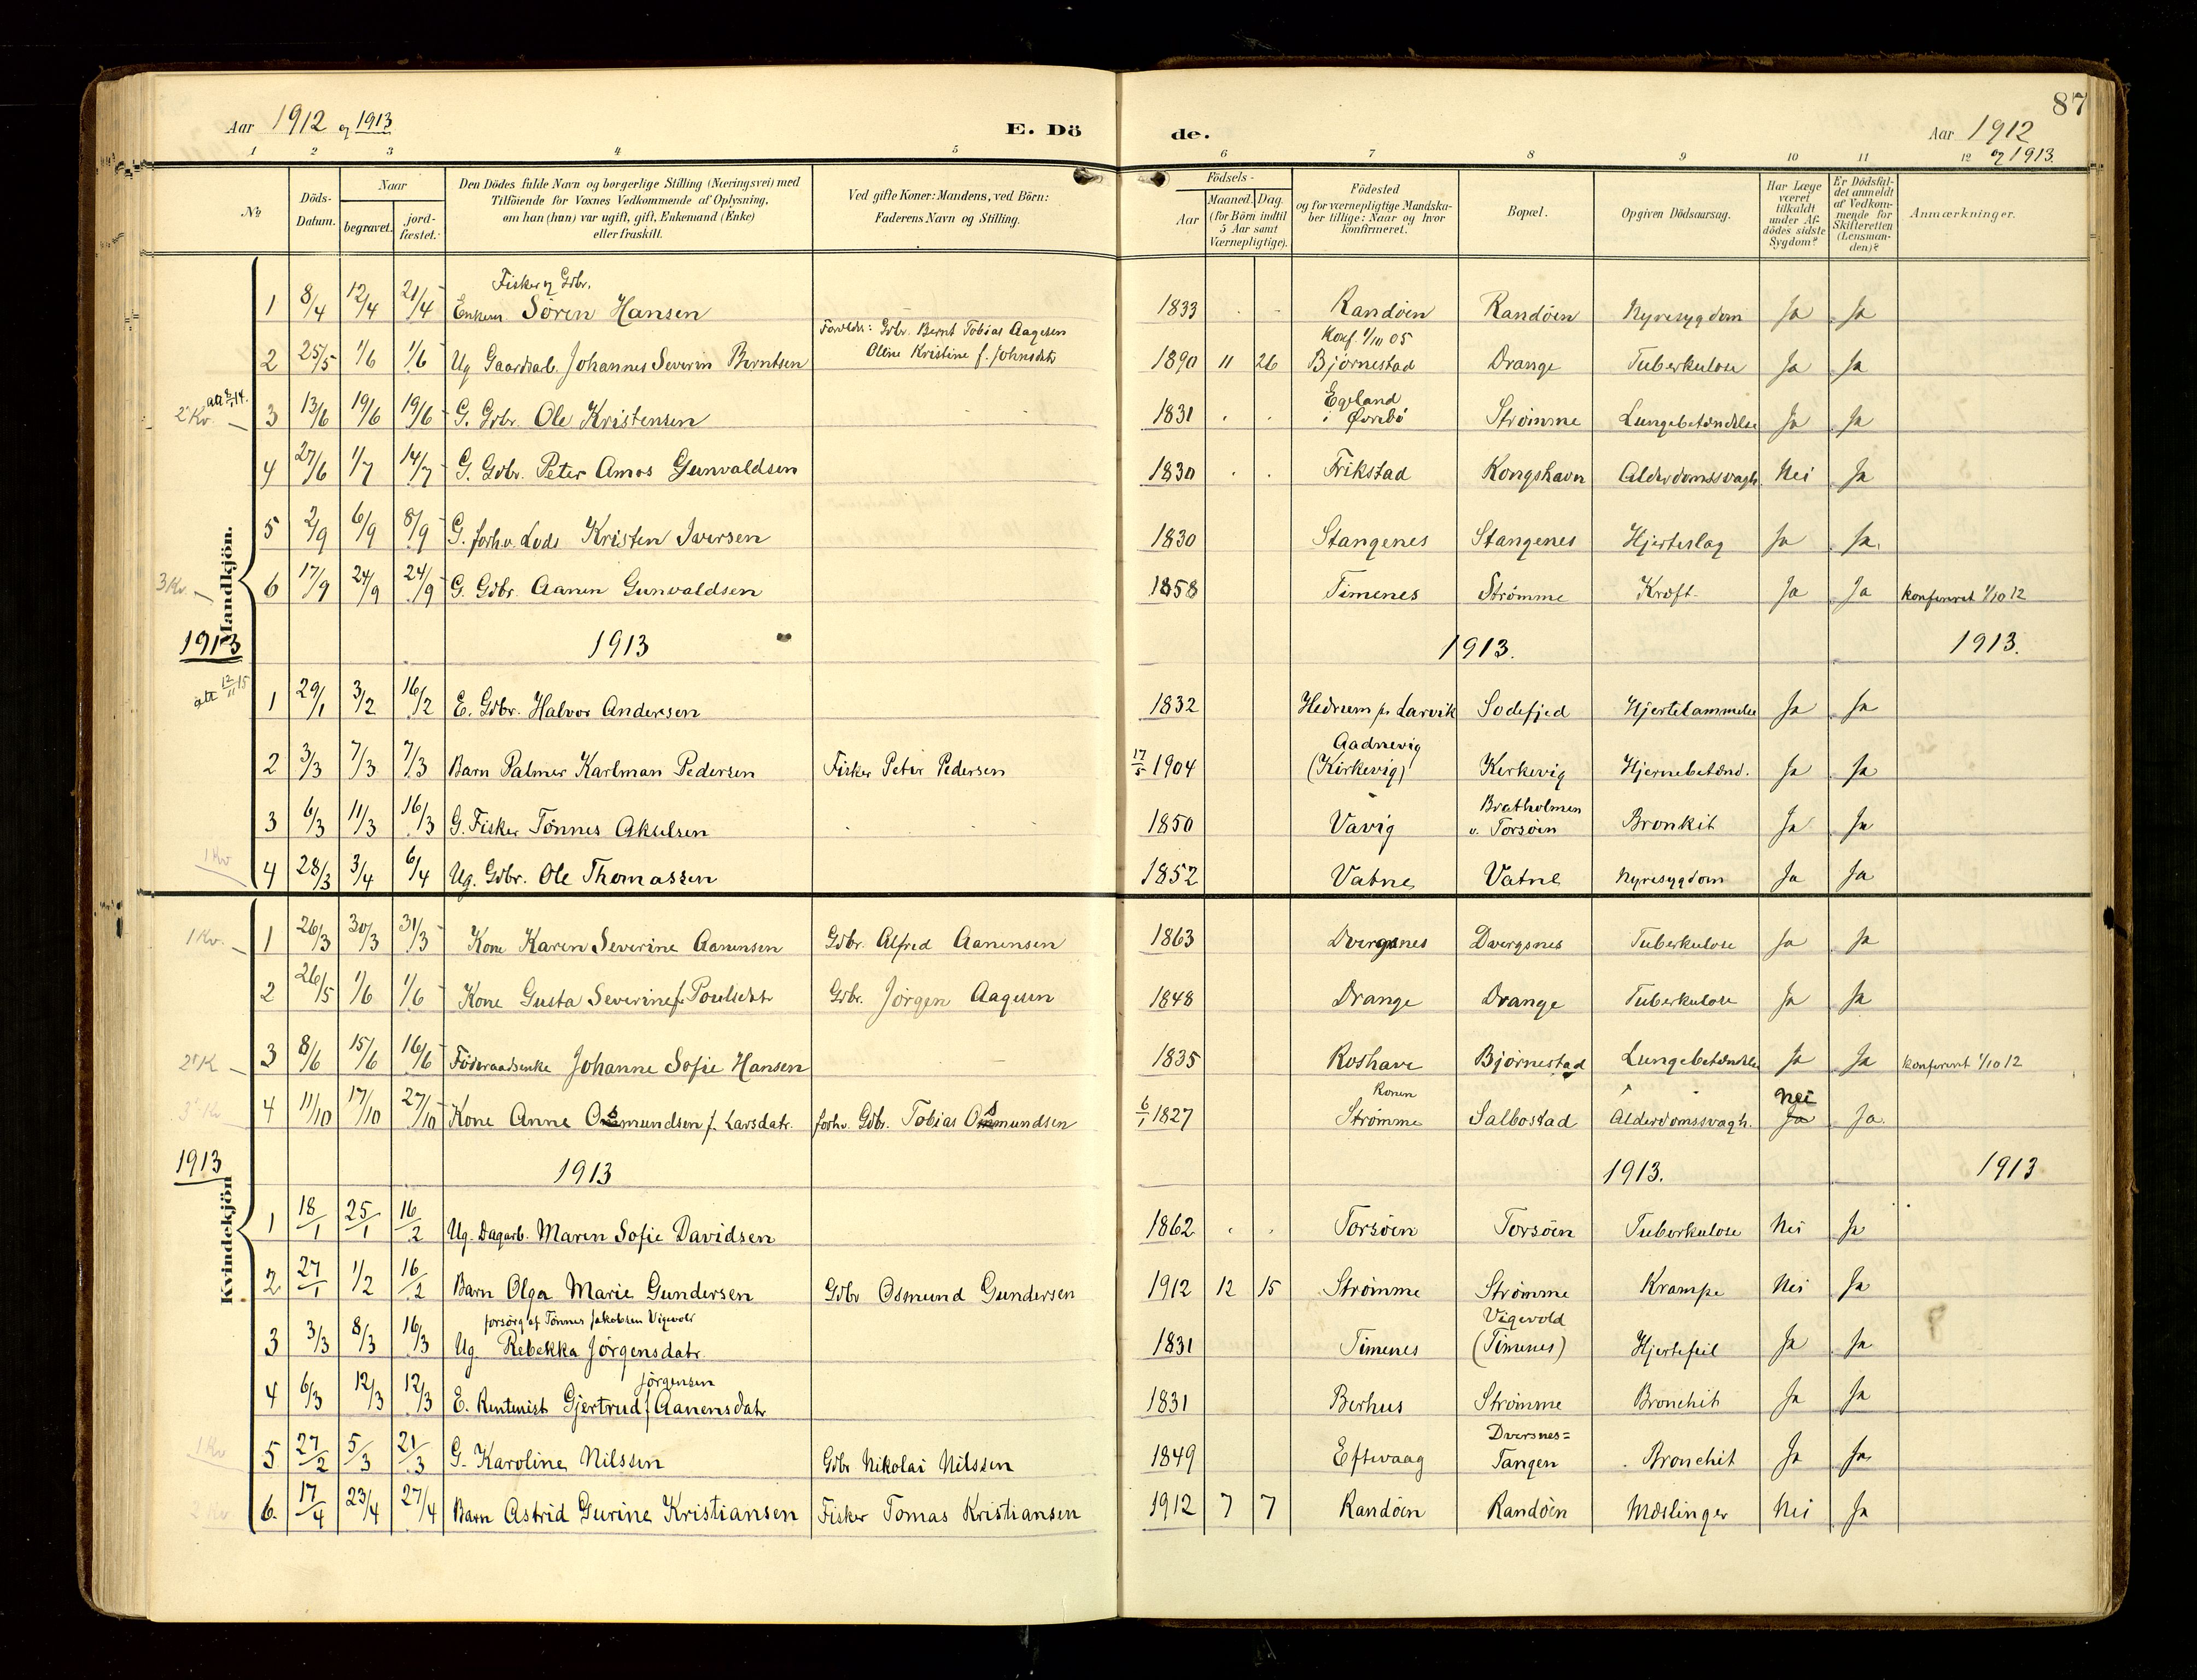 87
Aar 1912 og 1913
E. Dö de.
Aar 1912 og 1913.
1 2 3 4 5 6 7 8 9 10 11 12
No
Döds-Datum.
Naar
begravet.
jord-fæstet.
Den Dödes fulde Navn og borgerlige Stilling (Næringsvei) med
Tilföiende for Voxnes Vedkommende af Oplysning,
om han (hun) var ugift, gift, Enkemand (Enke)
eller fraskilt.
Ved gifte Koner: Mandens, ved Börn:
Faderens Navn og Stilling.
Födsels-
Aar
Maaned. Dag.
(for Börn indtil
5 Aar samt
Værnepligtige).
Födested
og for værnepligtige Mandska-
ber tillige: Naar og hvor
konfirmeret.
Bopæl.
Opgiven Dödsaarsag.
Har Læge
været
tilkaldt
under Af-
dödes sidste
Sygdom?
Er Dödsfal-
det anmeldt
af Vedkom-
mende for
Skifteretten
(Lensman-
den)?
Anmærkninger.
Mandkjön.
Fisker og Gdbr.
1 8/4 12/4 21/4 Enkem. Sören Hansen 1833 Randöen Randöen Nyresygdom Ja Ja
Foreldr: Gdbr. Bernt Tobias Aagesen
Konf. 1/10 05
2 25/5 1/6 1/6 Ug Gaardsarb. Johannes Severin Berntsen Oline Kristine f. Johnsdtr 1890 11 26 Bjørnestad Drange Tuberkulose Ja Ja
Egeland
2 Kv. 3 13/6 19/6 19/6 G. Gdbr. Ole Kristensen 1831 i Øvrebö Strømme Lungebetændelse Ja Ja
4 27/6 1/7 14/7 G. Gdbr. Peter Amos Gunvaldsen 1830 Frikstad Kongshavn Alderdomssvagh. Nei Ja
5 2/9 6/9 8/9 G. forhv. Lods Kristen Iversen 1830 Stangenes Stangenes Hjerteslag Ja Ja.
3 Kv. 6 17/9 24/9 24/9 G. Gdbr. Aanen Gunvaldsen 1858 Timenes Strømme Kræft Ja Ja konfereret 1/10 12
1913 1913 1913. 1913.
att 12/11 15
1 29/1 3/2 16/2 E. Gdbr. Halvor Andersen 1832 Hedrum pr Larvik Sodefjed Hjertelammelse Ja Ja
Aadnevig
2 3/3 7/3 7/3 Barn Palmer Karlman Pedersen Fisker Peter Pedersen 17/5 1904 (Kirkevig) Kirkevig Hjernebetænd. Ja Ja
Bratholmen
3 6/3 11/3 16/3 G. Fisker Tönnes Akselsen 1850 Vavig v. Torsöen Bronkit Ja Ja
1 Kv 4 28/3 3/4 6/4 Ug. Gdbr. Ole Thomassen 1852 Vatne Vatne Nyresygdom Ja Ja
Kvindekjön
1 Kv. 1 26/3 30/3 31/3 Kone Karen Severine Aanensen Gdbr. Alfred Aanensen 1863 Dvergsnes Dvergsnes Tuberkulose Ja Ja
2 26/5 1/6 1/6 Kone Gusta Severine f. Poulsdtr Gdbr. Jörgen Aagesen 1848 Drange Drange Tuberkulose Ja Ja
2 K 3 8/6 15/6 16/6 Föderaadsenke Johanne Sofie Hansen 1835 Roshave Bjørnestad Lungebetændelse Ja Ja konfereret 1/10 12
Ronen nei
3 Kv 4 11/10 17/10 27/10 Kone Anne Osmundsen f. Larsdatr. forhv. Gdbr. Tobias Osmundsen 6/1 1827 Strømme Salbostad Alderdomssvagh. Ja Ja.
1913 1913 1913. 1913
1 18/1 25/1 16/2 Ug. Dagarb. Maren Sofie Davidsen 1862 Torsöen Torsöen Tuberkulose Nei Ja
2 27/1 1/2 16/2 Barn Olga Marie Gundersen Gdbr Osmund Gundersen 1912 12 15 Strømme Strømme Krampe Nei Ja
forsörg af Tönnes Jakobsen Vigevold Vigevold
3 3/3 8/3 16/3 Ug. Rebekka Jörgensdatr. 1831 Timenes (Timenes) Hjertefeil Ja Ja
Jörgensen
4 6/3 12/3 12/3 E. Rentenist Gjertrud f Aanensdatr 1831 Berhus Strømme Bronchit Ja Ja
Dversnes=
1 Kv 5 27/2 5/3 21/3 G. Karoline Nilssen Gdbr Nikolai Nilssen 1849 Eftevaag Tangen Bronchit Ja Ja
2 Kv 6. 17/4 23/4 27/4 Barn Astrid Gurine Kristiansen Fisker Tomas Kristiansen 1912 7 7 Randöen Randöen Mæslinger Nei Ja